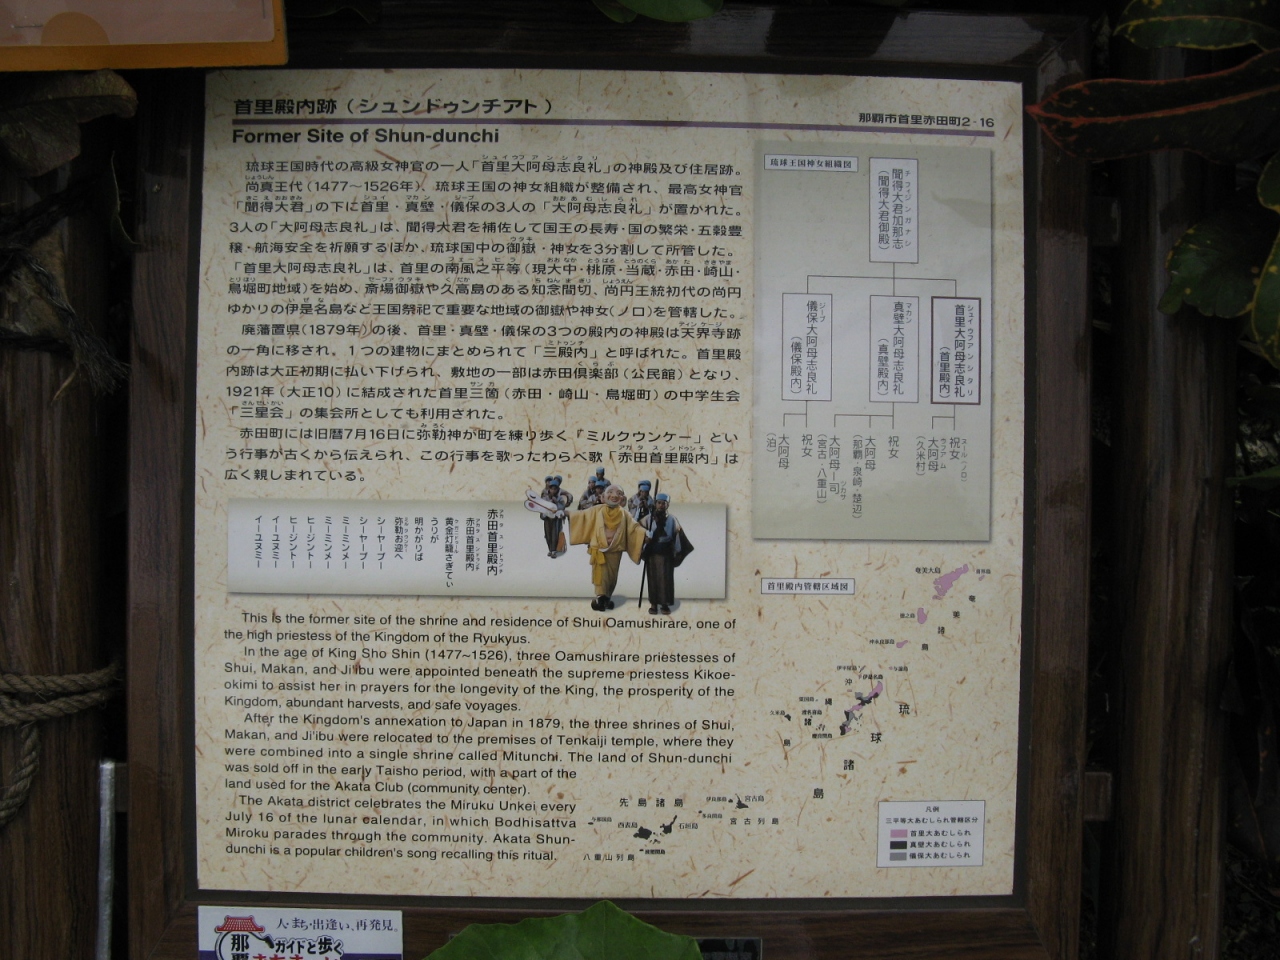 首里殿内跡（シュンドゥンチアト）
那覇市首里赤田町2-16
Former Site of Shun-dunchi
琉球王国時代の高級女神官の一人「首里大阿母志良礼」の神殿及び住居跡。
尚真王代（1477～1526年）、琉球王国の神女組織が整備され、最高女神官
「聞得大君」の下に首里・真壁・儀保の3人の「大阿母志良礼」が置かれた。
3人の「大阿母志良礼」は、聞得大君を補佐して国王の長寿・国の繁栄・五穀豊
穣・航海安全を祈願するほか、琉球国中の御嶽・神女を3分割して所管した。
「首里大阿母志良礼」は、首里の南風之平等（現大中・桃原・当蔵・赤田・崎山・
鳥堀町地域）を始め、斎場御嶽や久高島のある知念間切、尚円王統初代の尚円
ゆかりの伊是名島など王国祭祀で重要な地域の御嶽や神女（ノロ）を管轄した。
廃藩置県（1879年）の後、首里・真壁・儀保の3つの殿内の神殿は天界寺跡
の一角に移され、１つの建物にまとめられて「三殿内」と呼ばれた。首里殿
内跡は大正初期に払い下げられ、敷地の一部は赤田倶楽部（公民館）となり、
1921年（大正10）に結成された首里三箇（赤田・崎山・鳥堀町）の中学生会
「三星会」の集会所としても利用された。
赤田町には旧暦7月16日に弥勒神が町を練り歩く「ミルクウンケー」とい
う行事が古くから伝えられ、この行事を歌ったわらべ歌「赤田首里殿内」は
広く親しまれている。
赤田首里殿内
赤田首里殿内
黄金灯籠さぎてぃ
うりが
明かがりば
弥勒お迎へ
シーヤープー
シーヤープー
ミーミンメー
ミーミンメー
ヒージントー
ヒージントー
イーユヌミー
イーユヌミー
This is the former site of the shrine and residence of Shui Oamushirare, one of
the high priestess of the Kingdom of the Ryukyus.
In the age of King Sho Shin (1477~1526), three Oamushirare priestesses of
Shui, Makan, and Ji'ibu were appointed beneath the supreme priestess Kikoe-
okimi to assist her in prayers for the longevity of the King, the prosperity of the
Kingdom, abundant harvests, and safe voyages.
After the Kingdom's annexation to Japan in 1879, the three shrines of Shui,
Makan, and Ji'ibu were relocated to the premises of Tenkaiji temple, where they
were combined into a single shrine called Mitunchi. The land of Shun-dunchi
was sold off in the early Taisho period, with a part of the
land used for the Akata Club (community center).
The Akata district celebrates the Miruku Unkei every
July 16 of the lunar calendar, in which Bodhisattva
Miroku parades through the community. Akata Shun-
dunchi is a popular children's song recalling this ritual.
琉球王国神女組織図
聞得大君加那志
（聞得大君御殿）
チフィジンガナシ
首里大阿母志良礼
（首里殿内）
真壁大阿母志良礼
（真壁殿内）
儀保大阿母志良礼
（儀保殿内）
祝女
大阿母
（久米村）
祝女
大阿母
（那覇・泉崎・楚辺）
大阿母―司
（宮古・八重山）
祝女
大阿母
（泊）
首里殿内管轄区域図
奄美大島
奄美諸島
沖縄諸島
琉球諸島
先島諸島
宮古島
宮古列島
石垣島
西表島
八重山列島
凡例
三平等大あむしられ管轄区分
首里大あむしられ
真壁大あむしられ
儀保大あむしられ
人・まち・出逢い、再発見。
ガイドと歩く